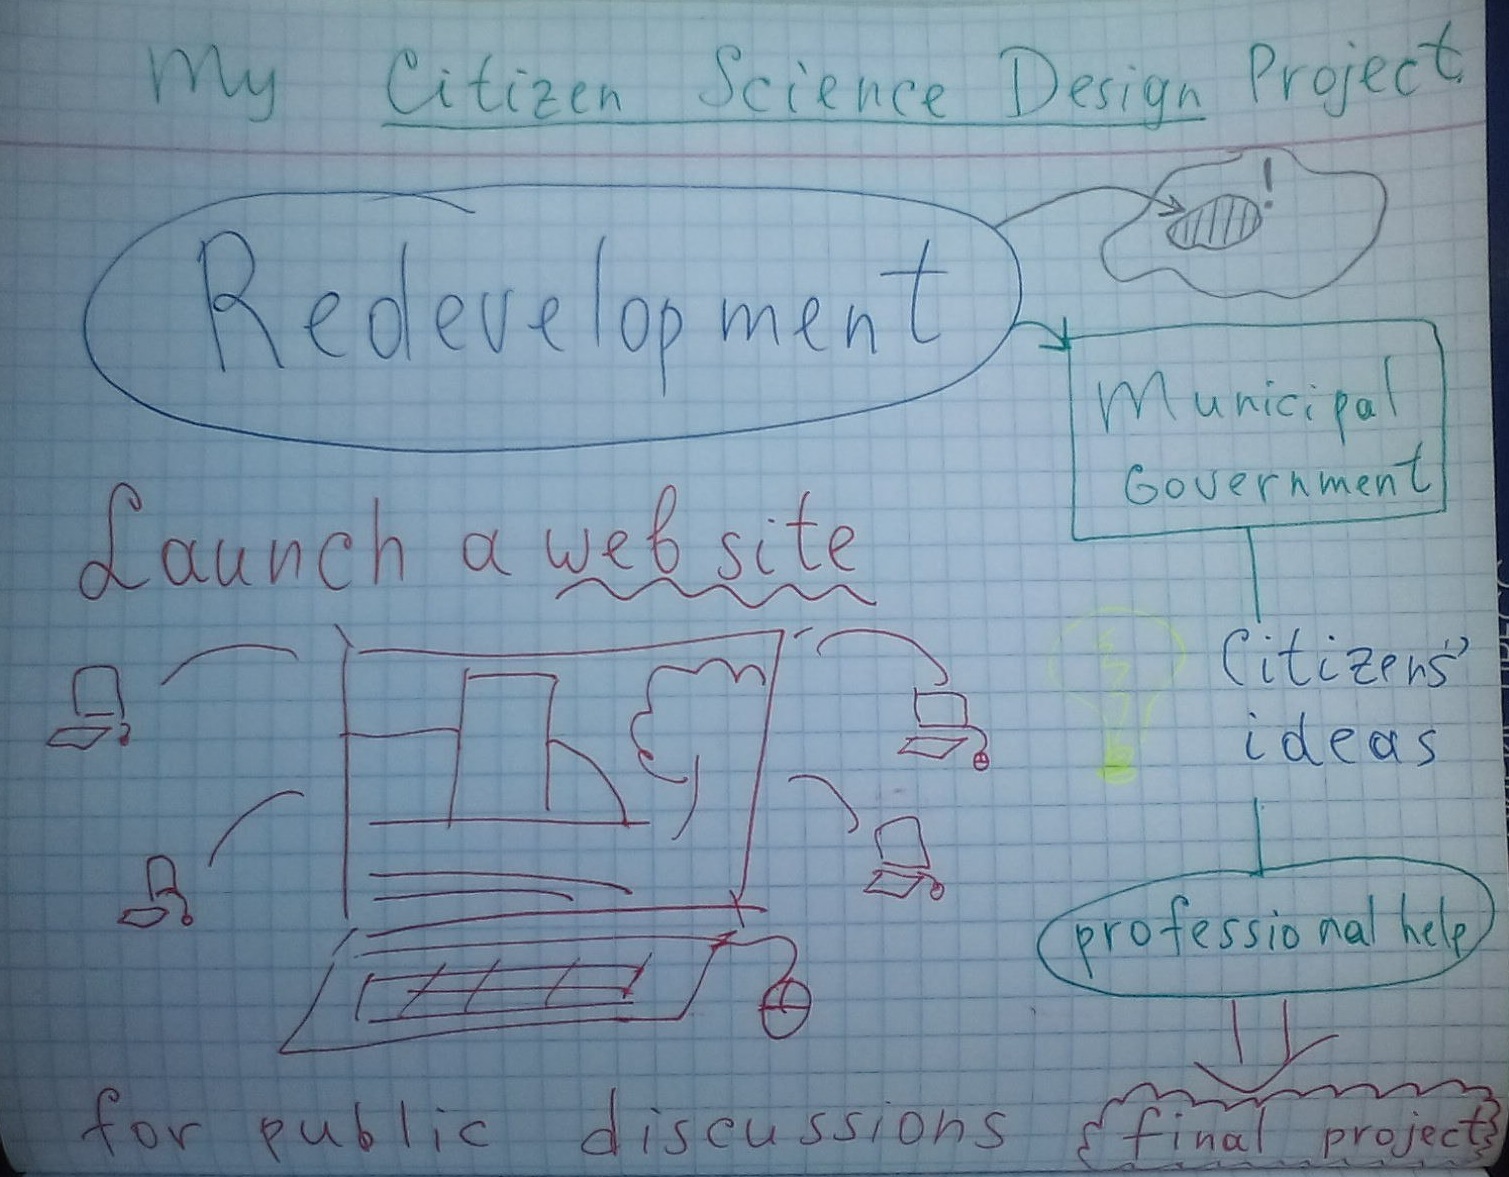 My Citizen Science Design Project
Redevelopment
!
Municipal
Government
Launch a web site
Citizens'
ideas
professional help
for public discussions
final project